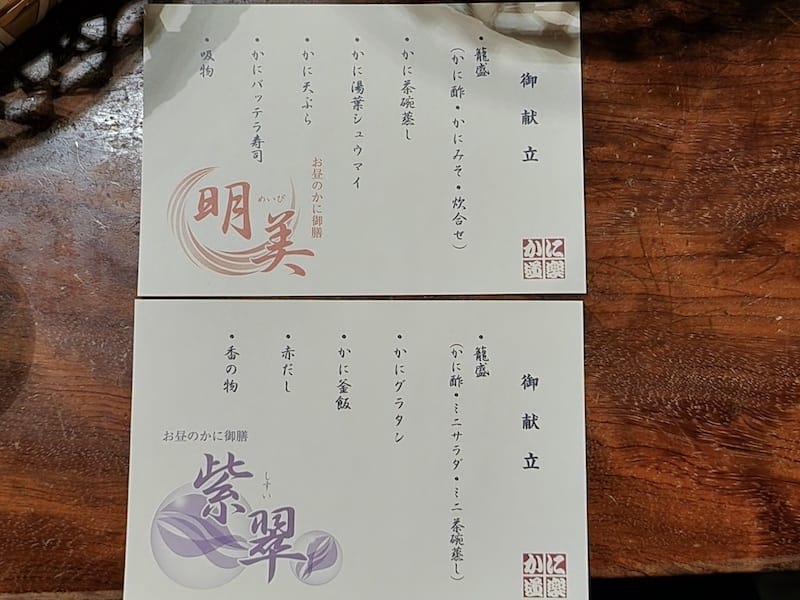 御献立
・籠盛
(かに酢・かにみそ・炊合せ)
・かに茶碗蒸し
・かに湯葉シュウマイ
・かに天ぷら
・かにバッテラ寿司
・吸物
お昼のかに御膳
明美
めいび
かに道楽
御献立
・籠盛
(かに酢・ミニサラダ・ミニ茶碗蒸し)
・かにグラタン
・かに釜飯
・赤だし
・香の物
お昼のかに御膳
紫翠
しすい
かに道楽